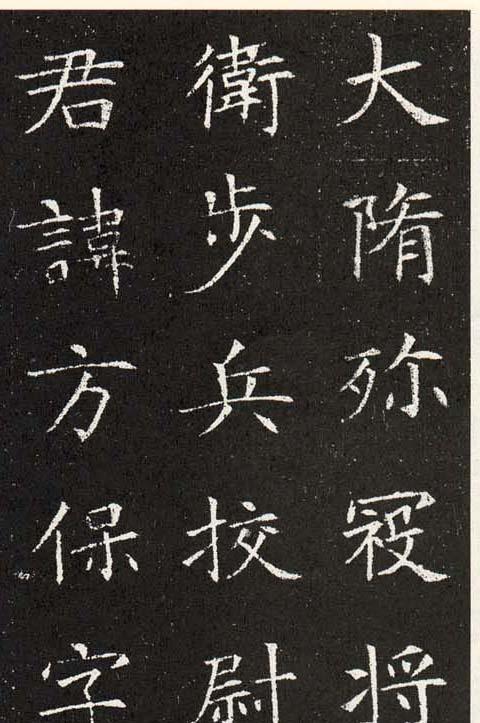 大隋殄寇将
衛歩兵挍尉
君諱方保字